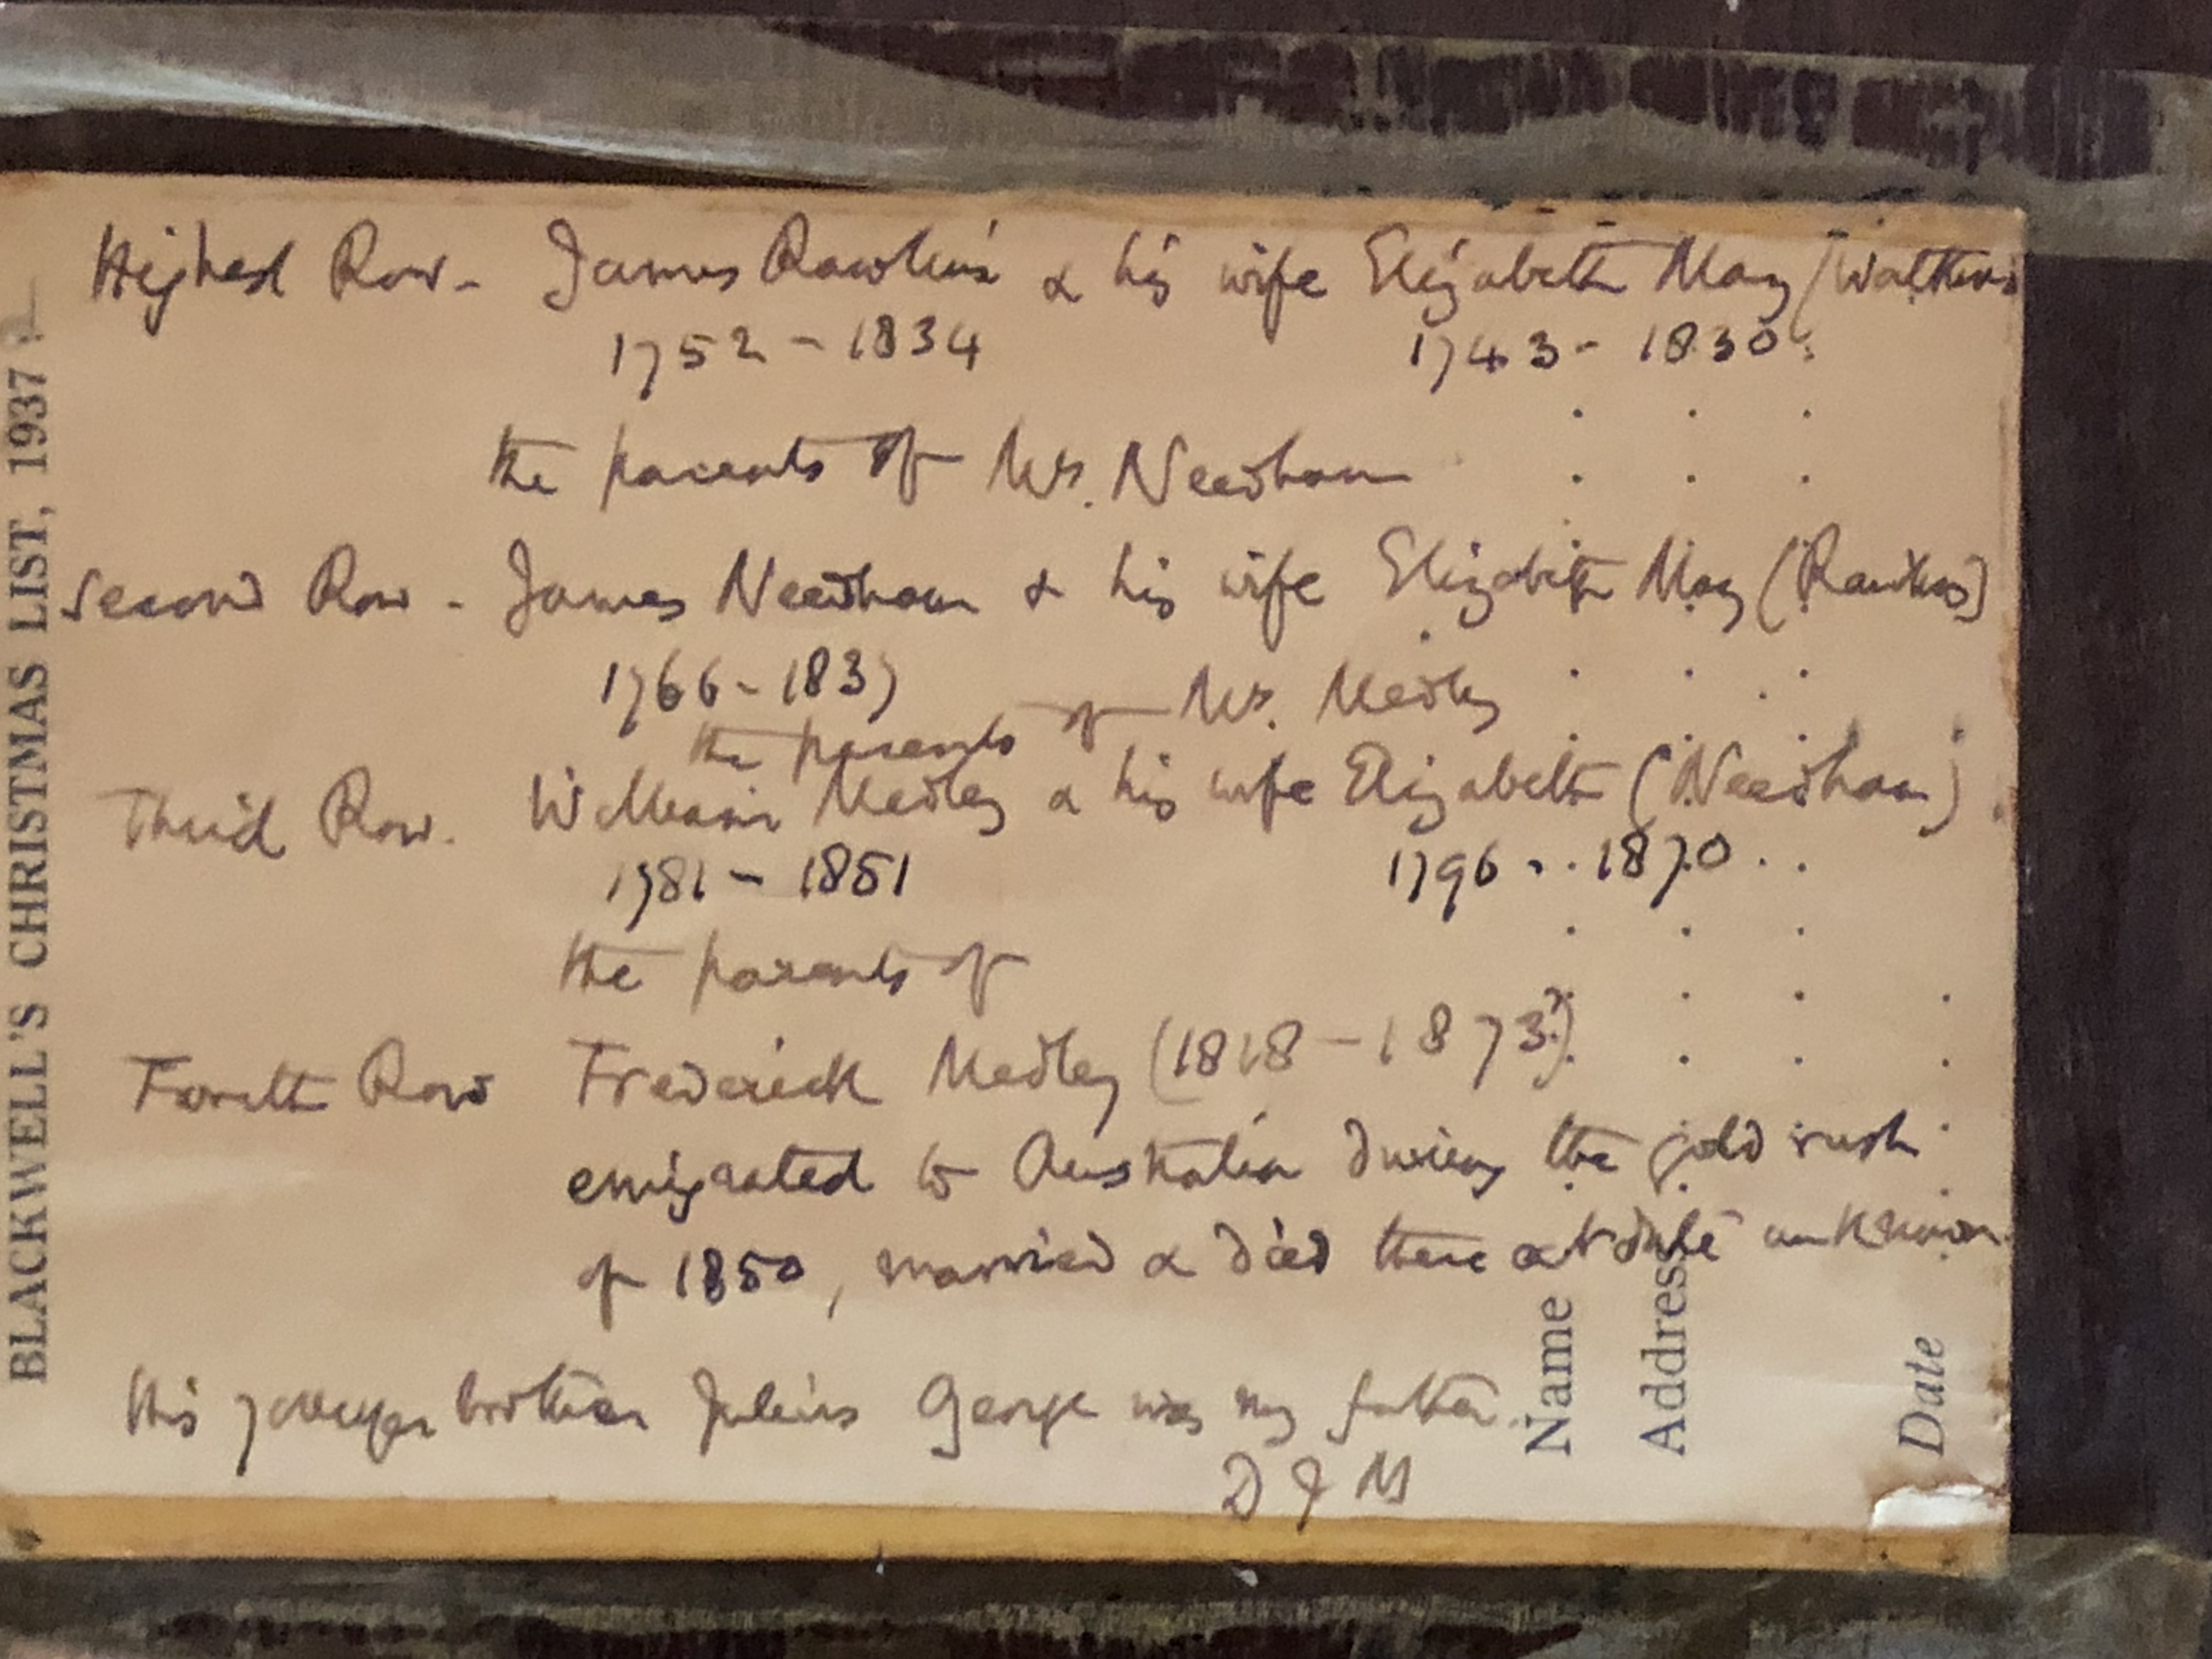 Highest Row - James Rawlins & his wife Elizabeth May (Watkins
1752 - 1834 1743 - 1830
the parents of Mrs. Needham
Second Row - James Needham & his wife Elizabeth May (Rawlins)
1766 - 1837
the parents of Mrs. Medley
Third Row. William Medley & his wife Elizabeth (Needham)
1781 - 1851 1796 . . 1870
the parents of
Fourth Row Frederick Medley (1818 - 1873?)
emigrated to Australia during the gold rush
of 1850, married & died there at date unknown
His younger brother Julius George was my father.
D J M
BLACKWELL'S CHRISTMAS LIST, 1937
Name
Address
Date